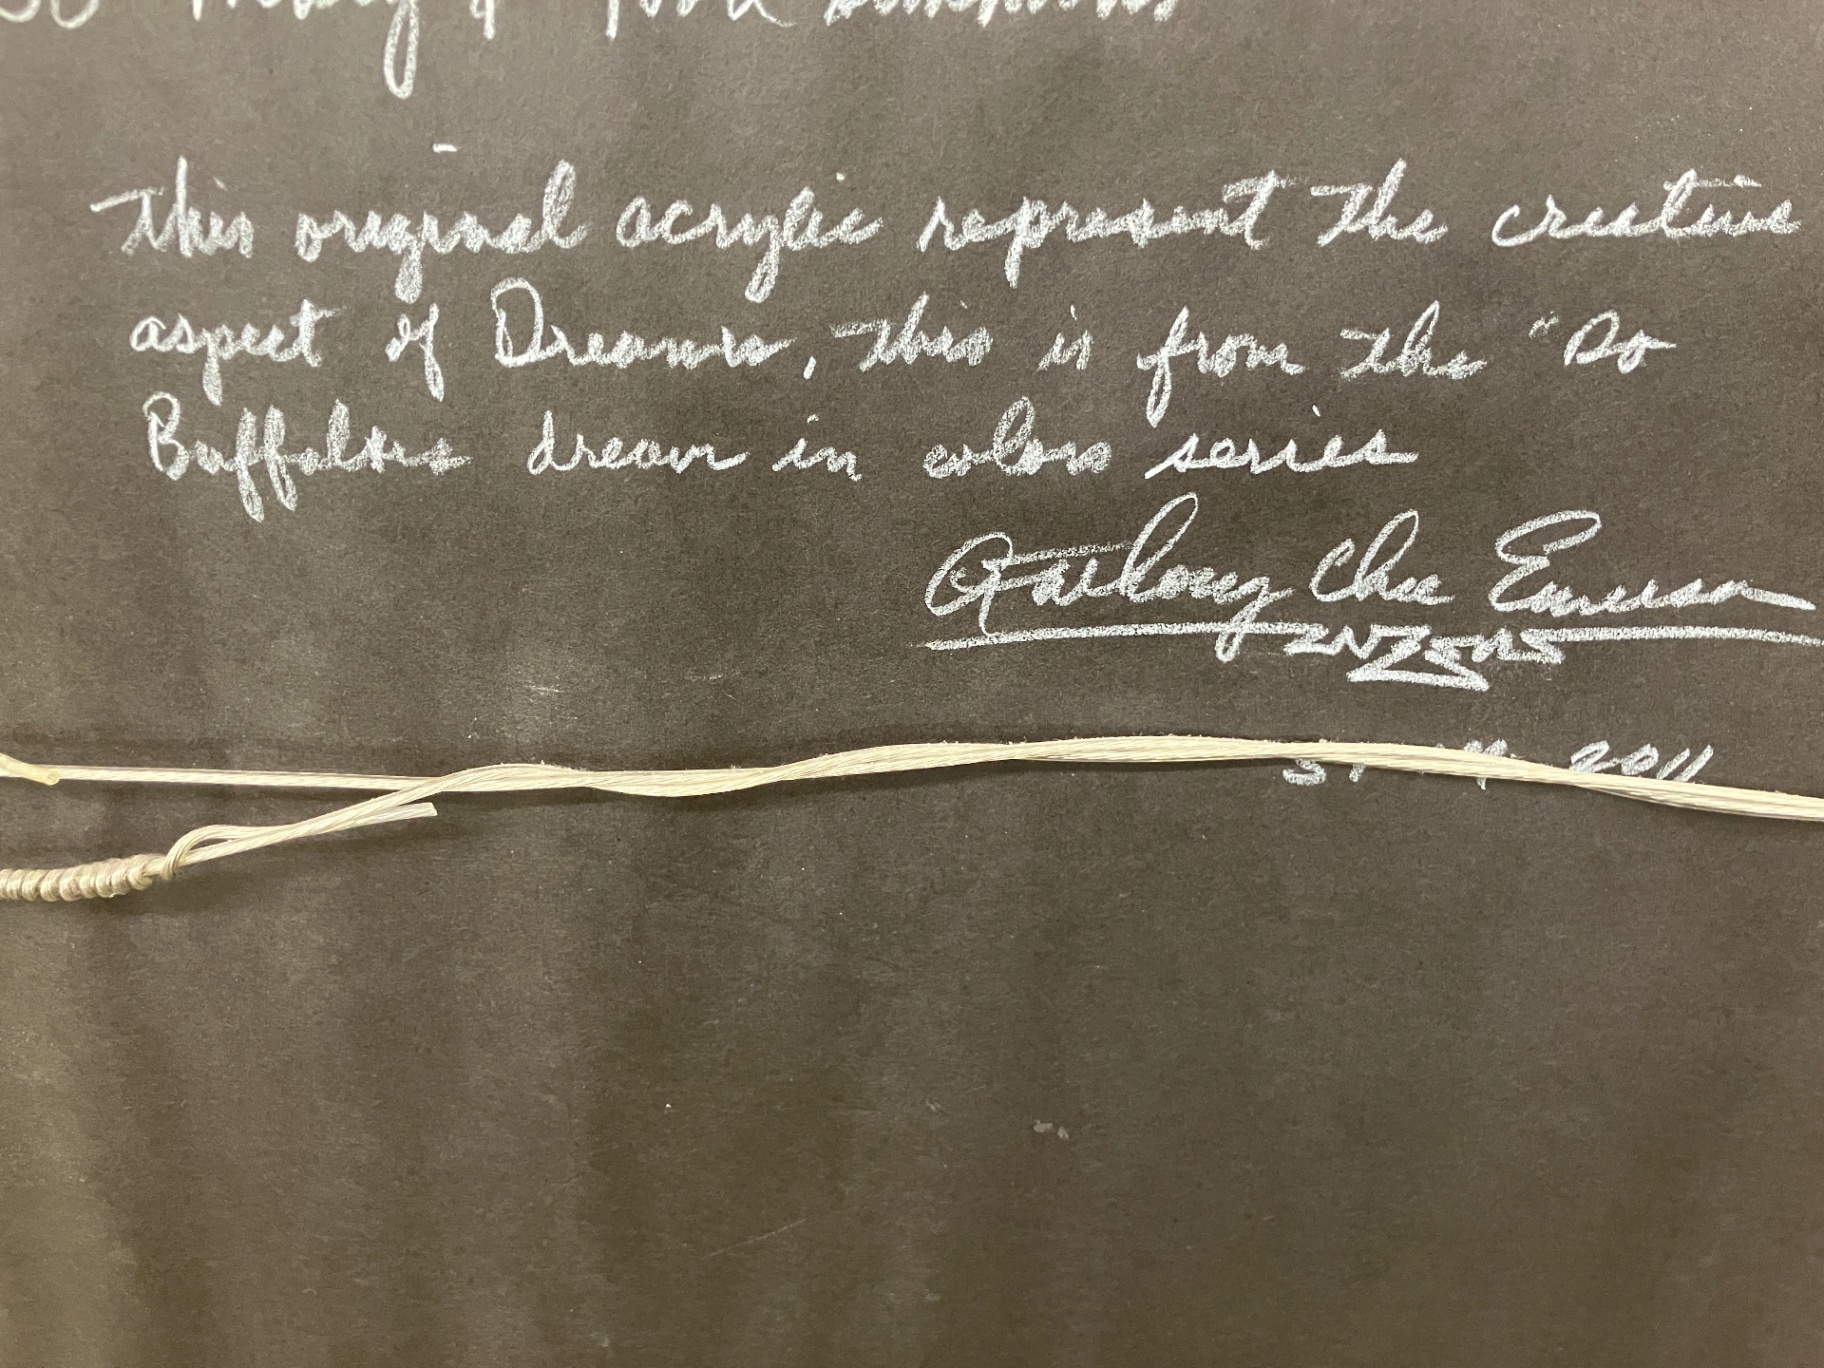 This original acrylic represent the creative
aspect of Dreams, this is from the "Do
Buffaloes dream in colors series
Chee Emerson
2011